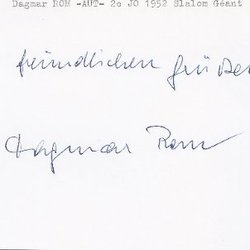 Dagmar ROM -AUT- 2e JO 1952 Slalom Géant
freundlichen Grüßen
Dagmar Rom